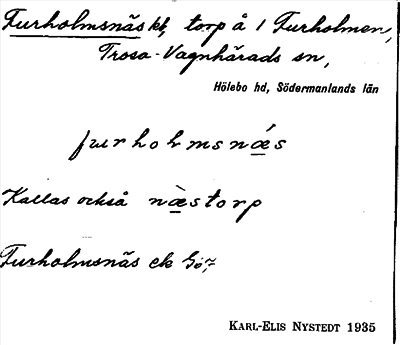 Furholmsnäs kf, torp å 1 Furholmen,
Trosa-Vagnhärads sn,
Hölebo hd, Södermanlands län
furholmsnǽs
Kallas också næ̀storp
Furholmsnäs ek
KARL-ELIS NYSTEDT 1935